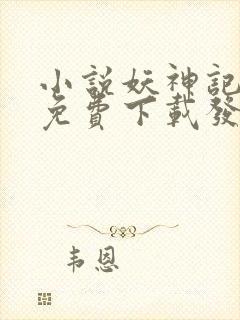 小說妖神記
免費下載發
韦恩